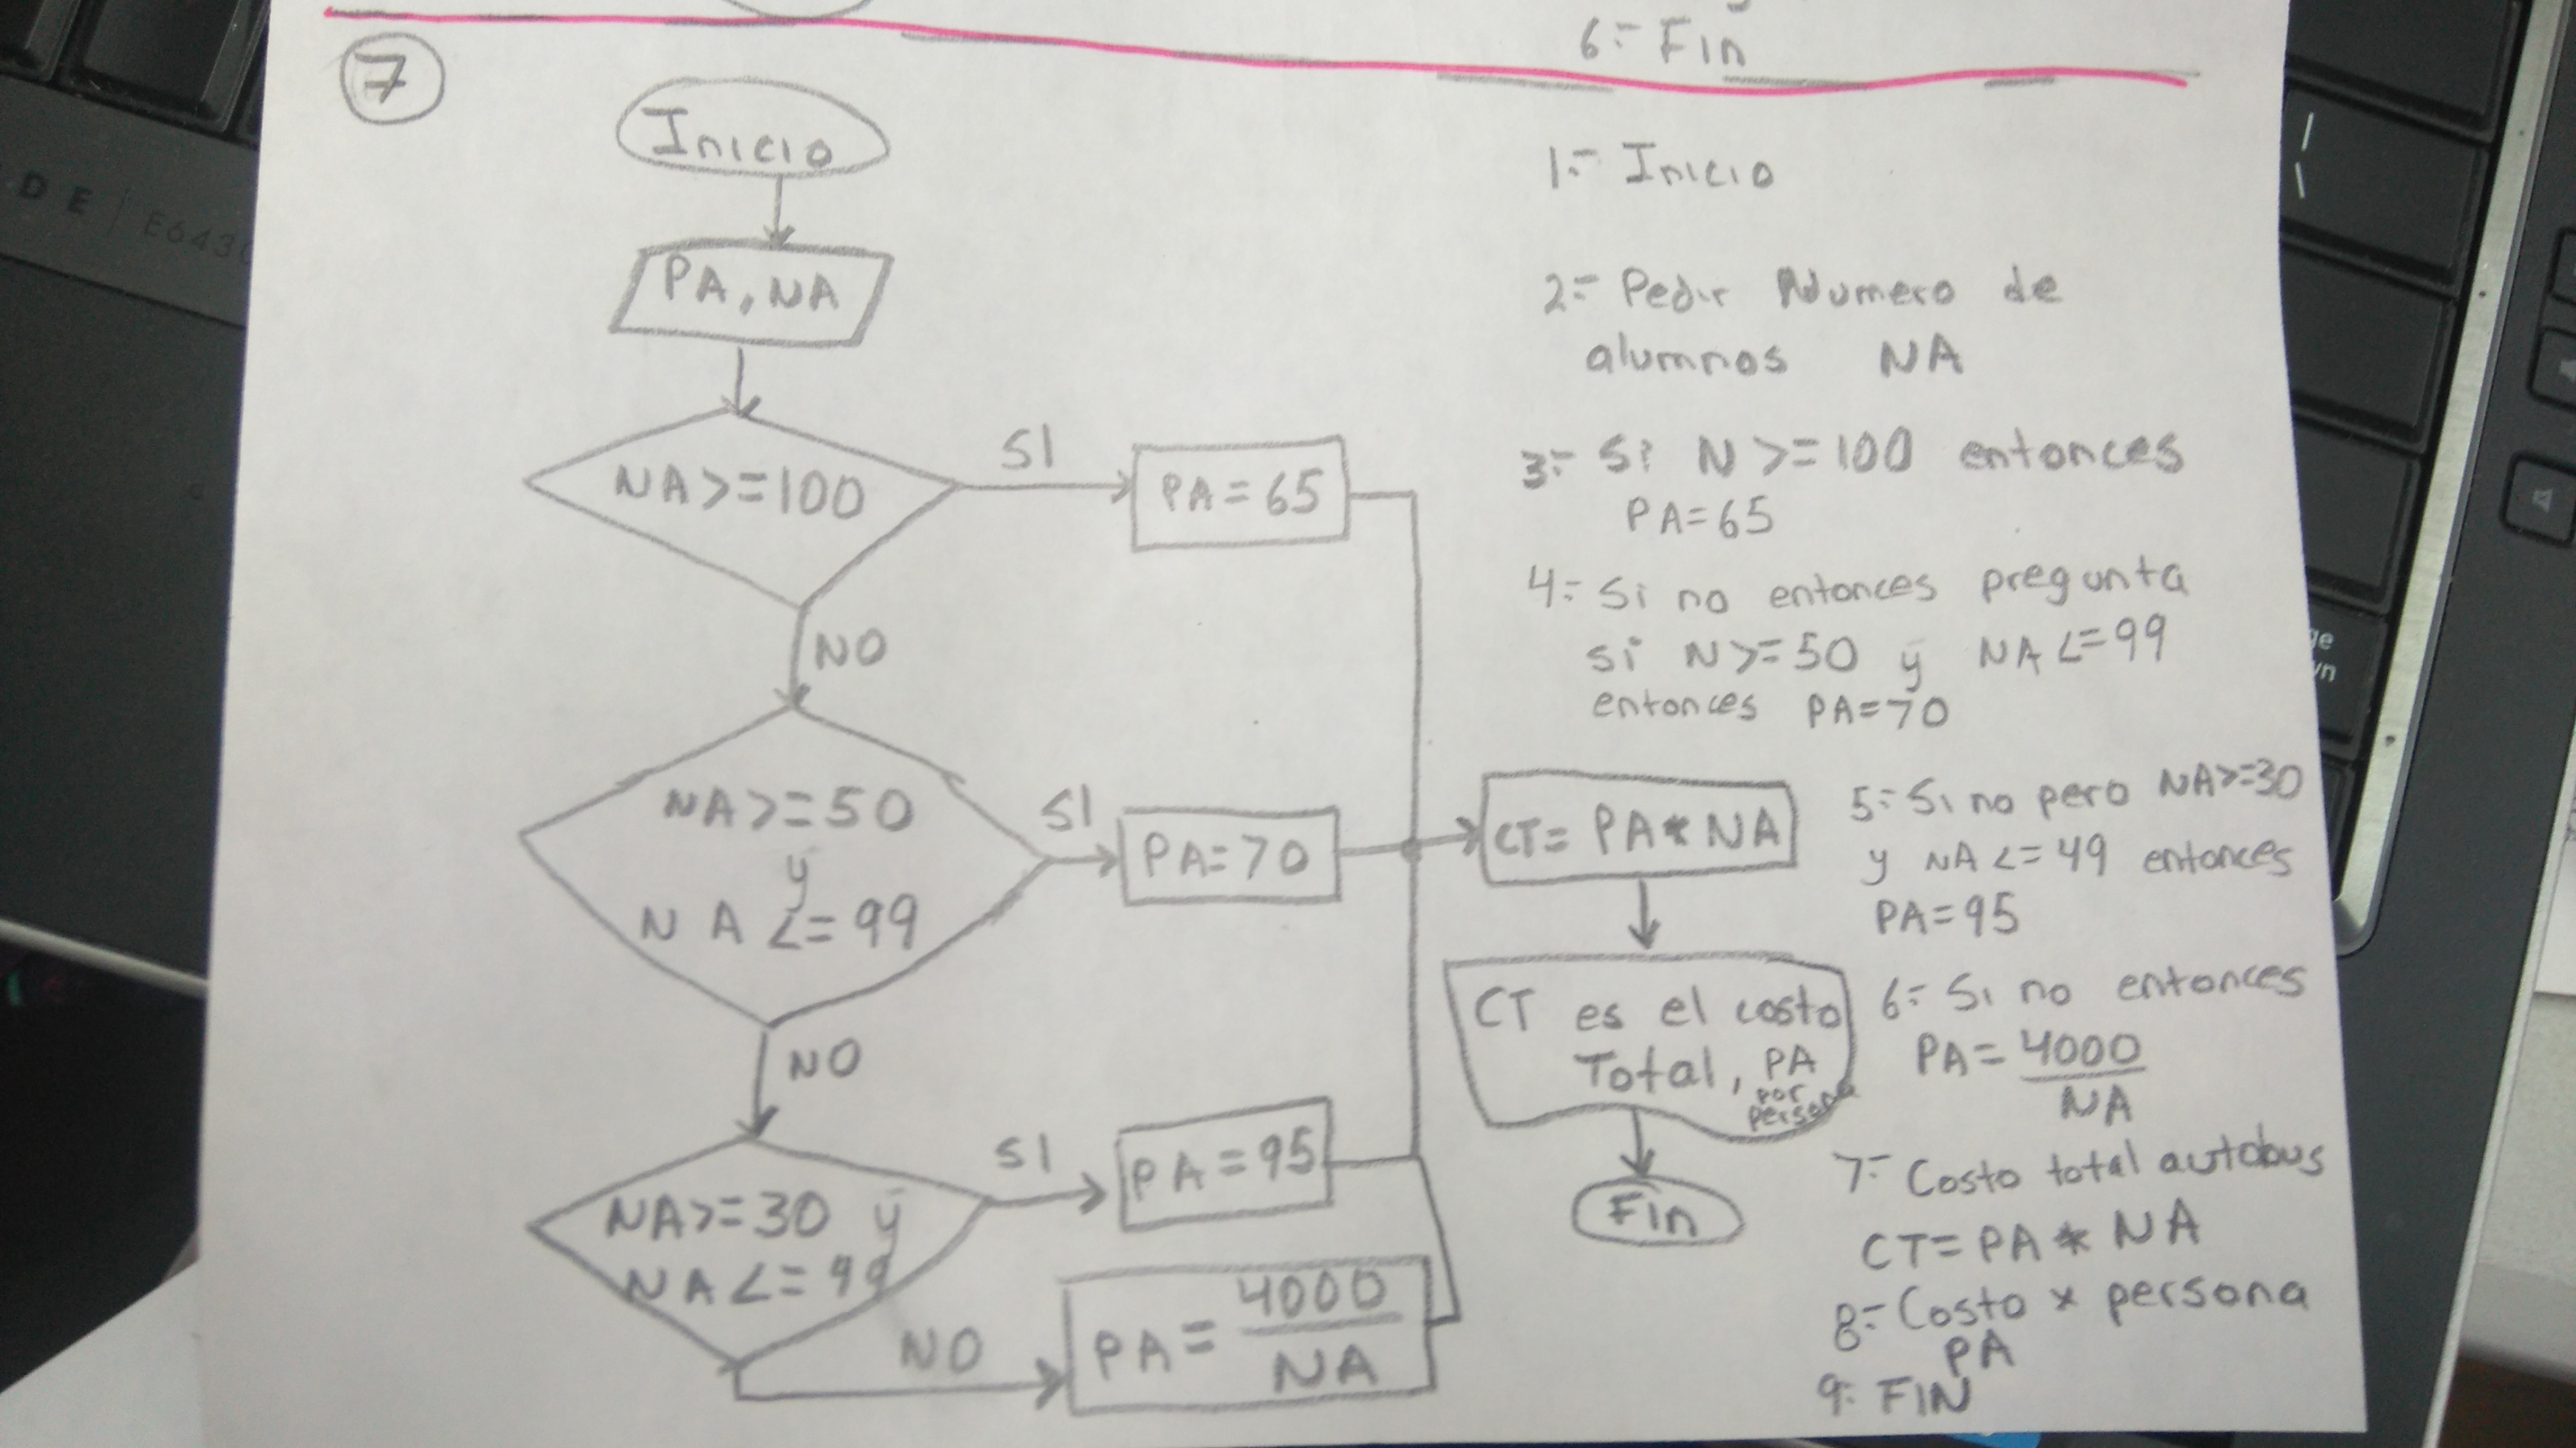 6:- Fin
7
Inicio
PA, NA
NA>=100
SI
PA=65
NO
NA>=50
y
NA<=99
SI
PA=70
NO
NA>=30 y
NA<=99
SI
PA=95
NO
PA= 4000
NA
CT= PA*NA
CT es el costo
Total, PA
por
persona
Fin
1:- Inicio
2:- Pedir Numero de
alumnos NA
3:- Si N>=100 entonces
PA=65
4:- Si no entonces pregunta
si N>=50 y NA<=99
entonces PA=70
5:- Si no pero NA>=30
y NA<=49 entonces
PA=95
6:- Si no entonces
PA= 4000
NA
7:- Costo total autobus
CT= PA*NA
8:- Costo x persona
PA
9:- FIN
DE | E643
ge
wn